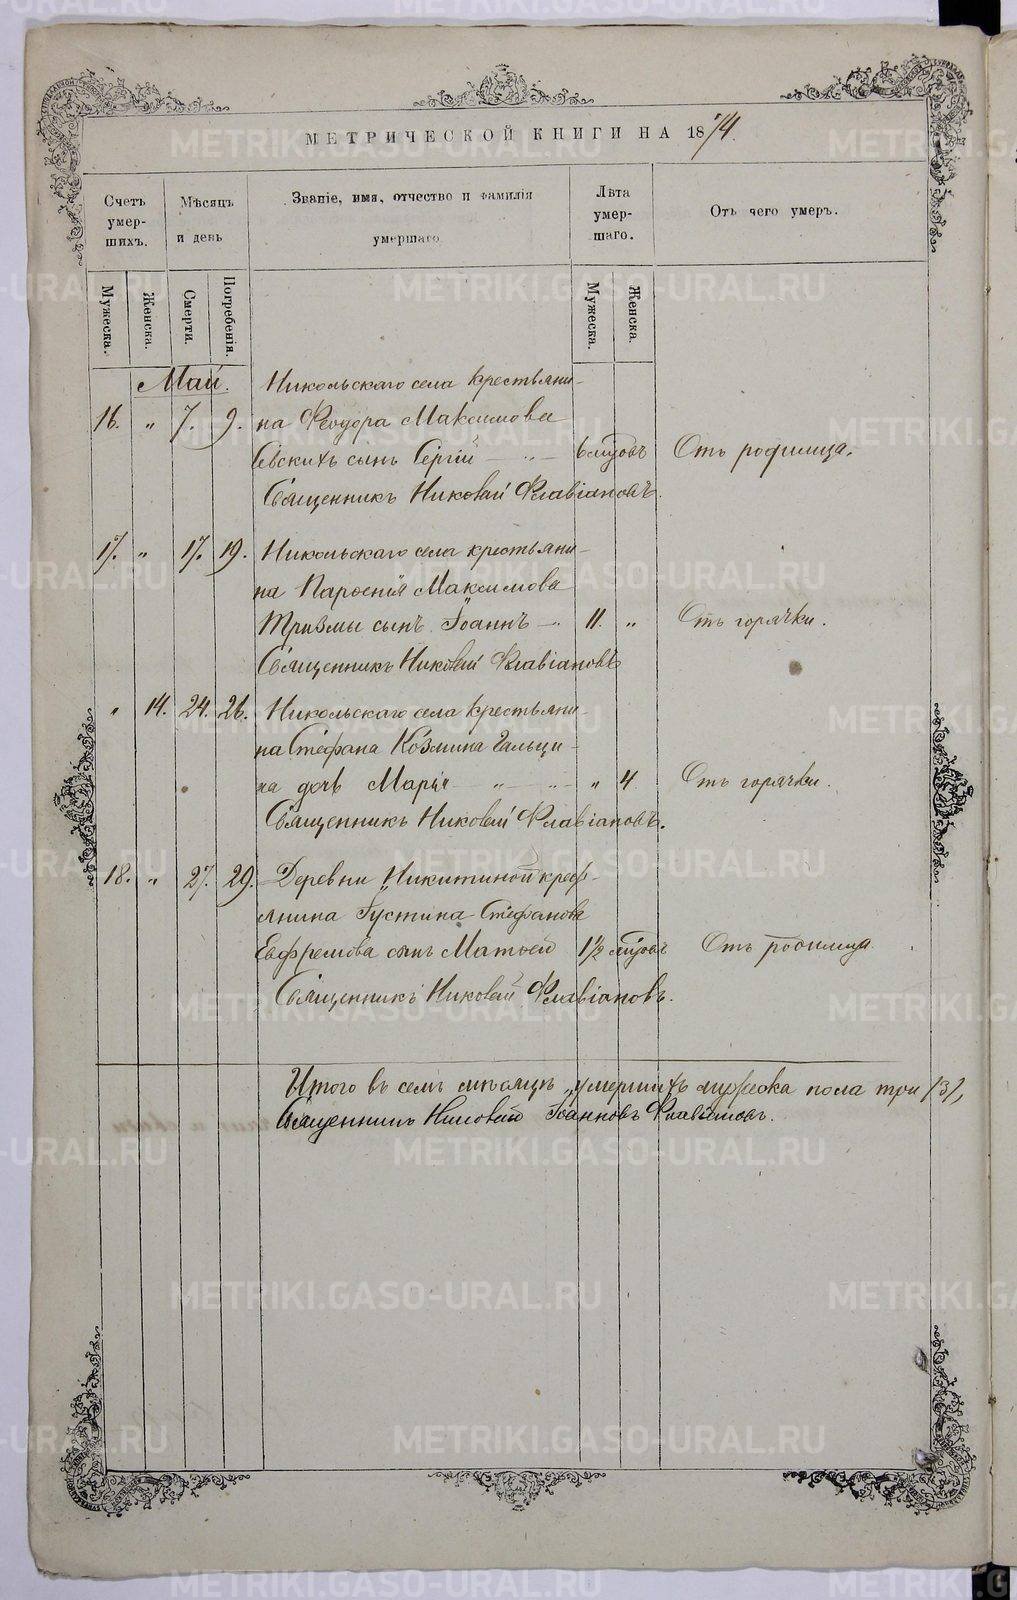 МЕТРИЧЕСКОЙ КНИГИ НА 1874.
Счетъ умер-шихъ.
Мѣсяцъ и день
Званіе, имя, отчество и фамилія умершаго.
Лѣта умер-шаго.
Отъ чего умеръ.
Мужеска.
Женска.
Смерти.
Погребенія.
Мужеска.
Женска.
Май.
Никольскаго села крестьяни-
16. " 7. 9. на Феодора Максимова
сынъ Сергій 6 Отъ родимца.
Священникъ Николай Флавіановъ.
17. " 17. 19. Никольскаго села крестьяни-
на Парѳенія Максимова
сынъ Іоаннъ 11. " Отъ горячки.
Священникъ Николай Флавіановъ
" 14. 24. 26. Никольскаго села крестьяни-
на Стефана Козмина Гальци-
на дочь Марія " 4 Отъ горячки.
Священникъ Николай Флавіановъ.
18. " 27. 29. Деревни Никитиной крест-
янина Іустина Стефанова
Евфремова сынъ Матѳей 1½ Отъ родимца.
Священникъ Николай Флавіановъ.
Итого въ семъ мѣсяцѣ умершихъ мужеска пола три /3/,
Священникъ Николай Іоанновъ Флавіановъ.
METRIKI.GASO-URAL.RU